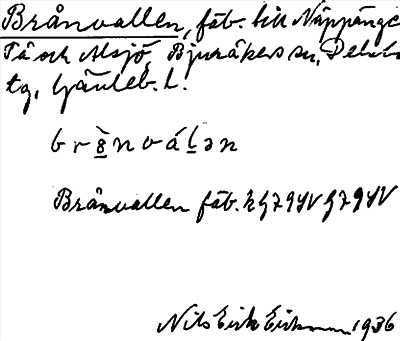 Brånvallen, fäb. till Näppänge
Tå och Alsjö, Bjuråkers sn, Delsbo
tg, Gävleb. l.
b r ö̀ n v á l ə n
Brånvallen fäb. k G 7 9 SV G 7 9 SV
Nils Erik Erikson 1936